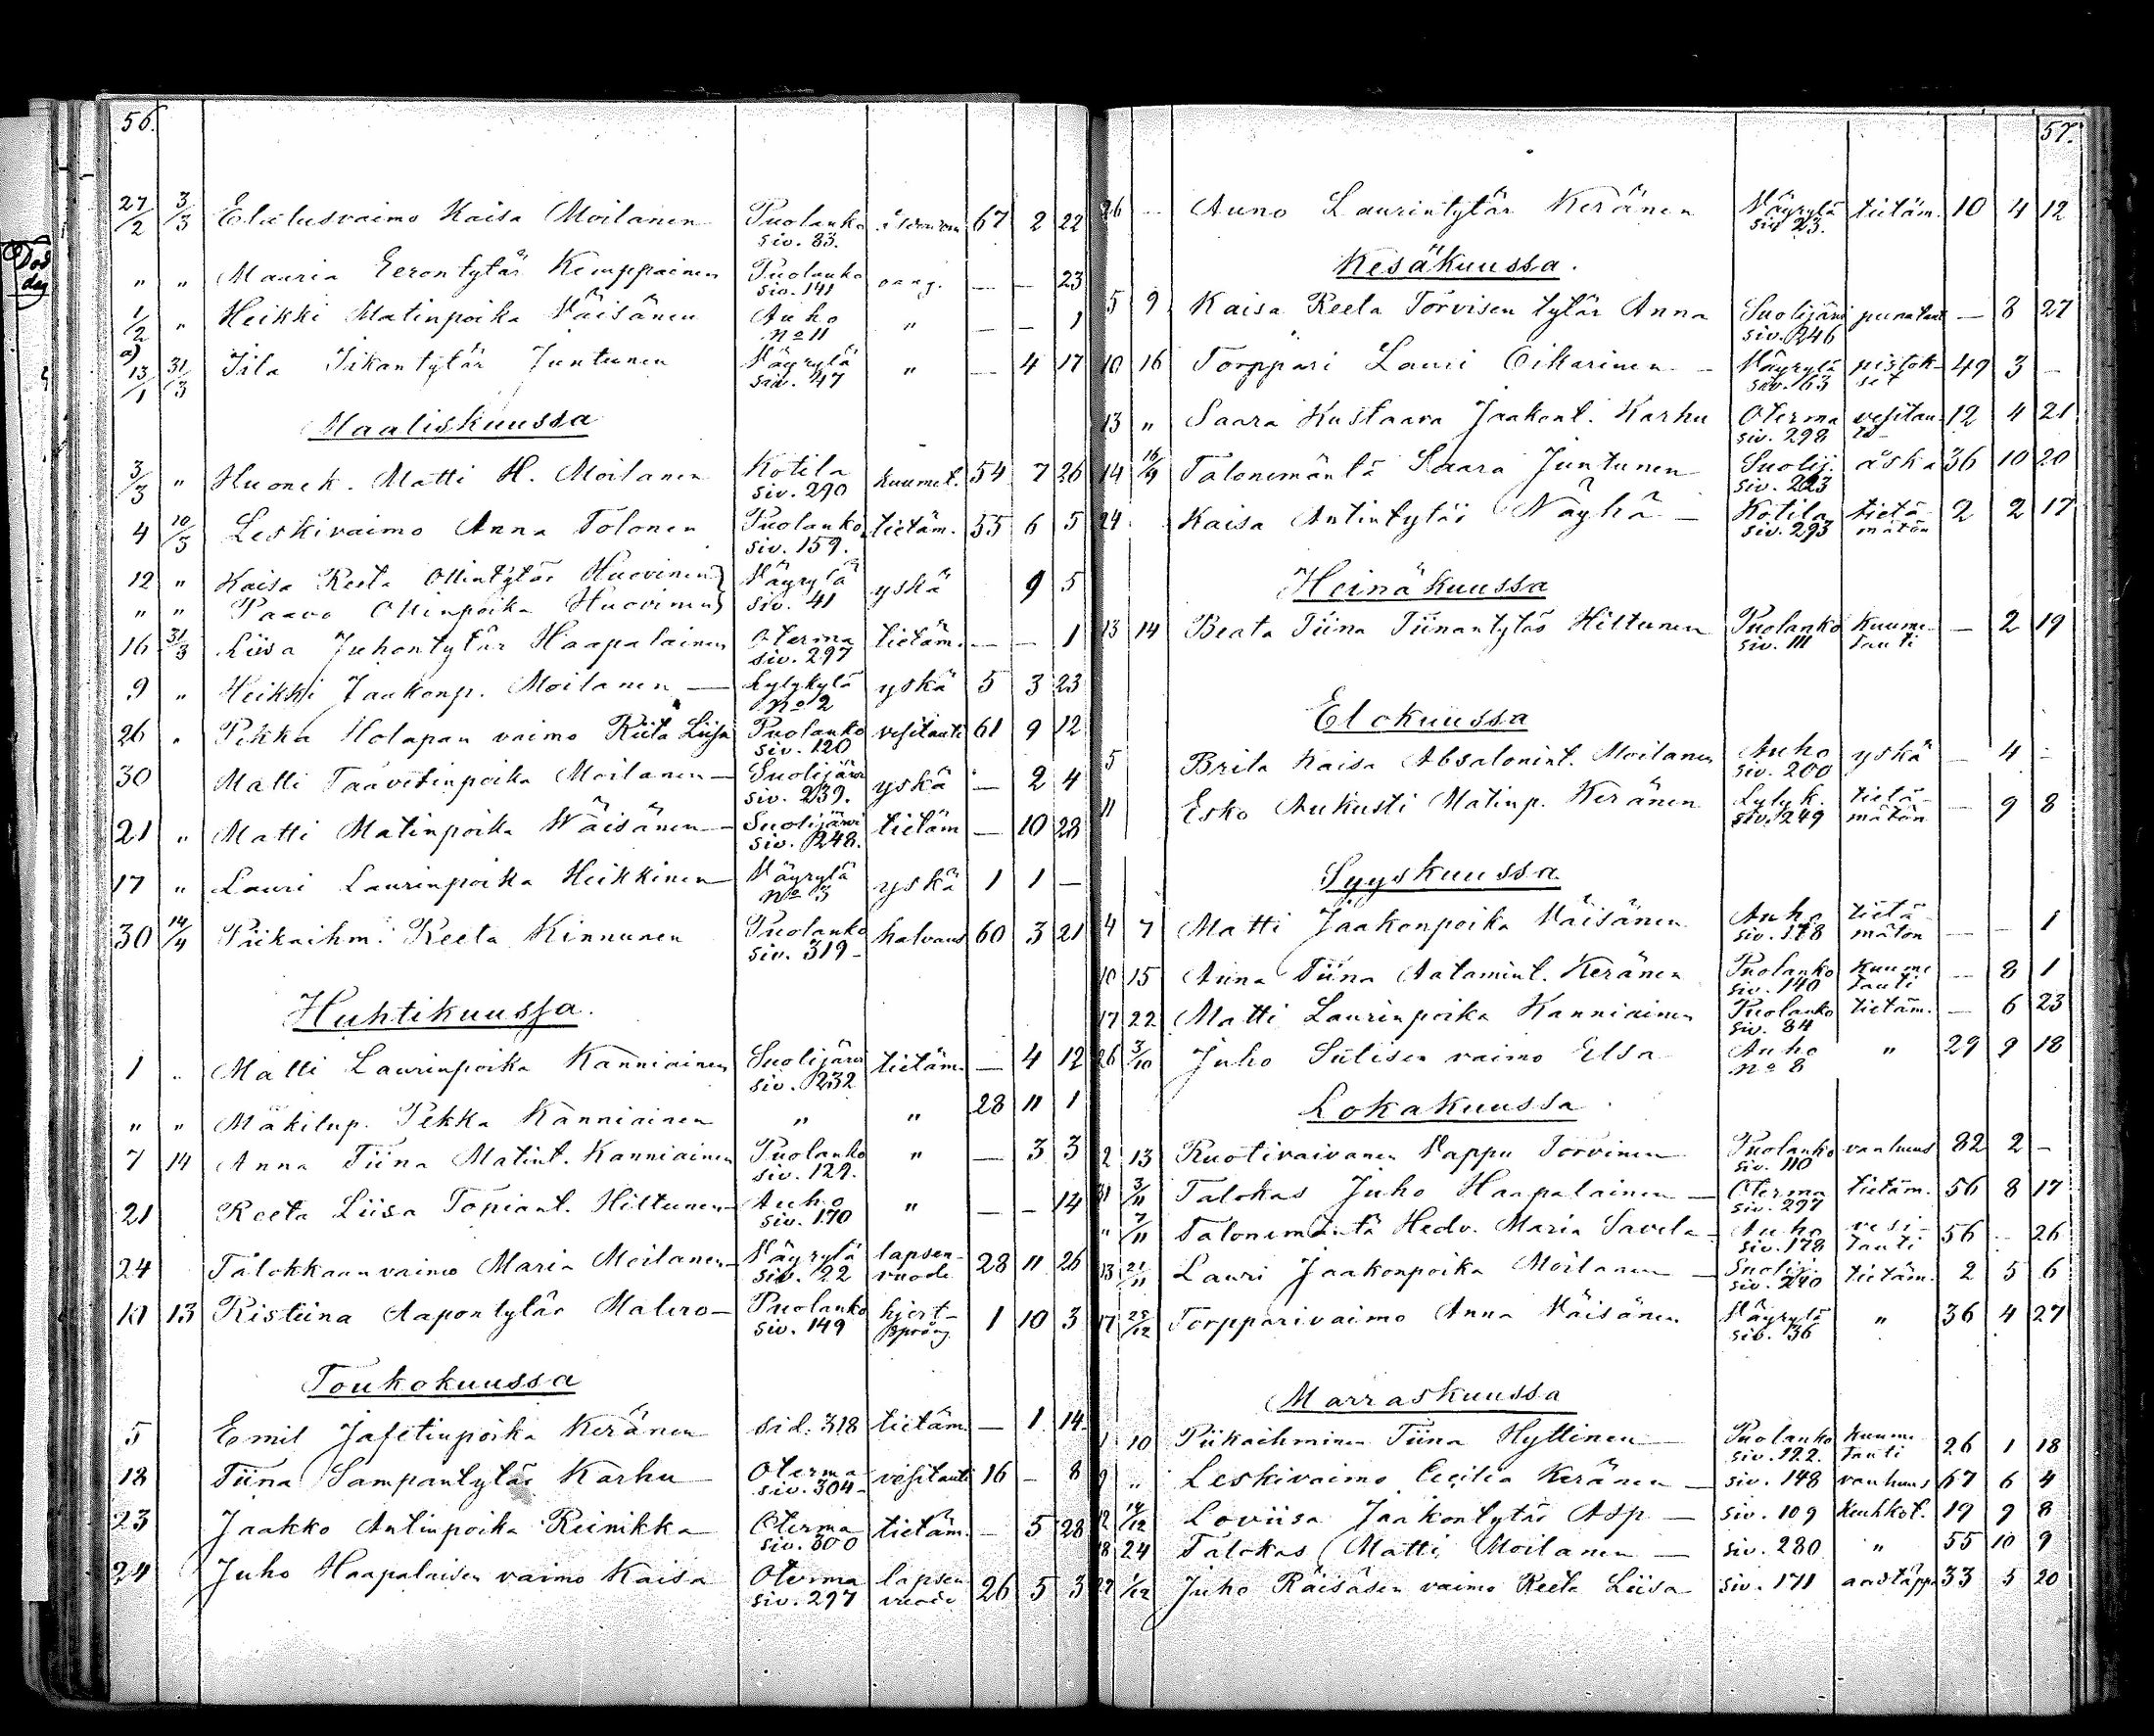 56.
27/2 3/3 Elätusvaimo Kaisa Moilanen Puolanko siv. 83. 67 2 22
" " Mauria Eerontytär Kemppainen Puolanko siv. 141 — — 23
1/2 " Heikki Matinpoika Väisänen Auho No 11 " — — 1
a) 13/1 31/3 Iikantytär Juntunen Väyrylä siv. 47 " — 4 17
Maaliskuussa
3/3 " Huonek. Matti H. Moilanen Kotila siv. 290 kuumet. 54 7 26
4 10/5 Leskivaimo Anna Tolonen Puolanko siv. 159. tietäm. 55 6 5
12 " Kaisa Reeta Ollintytär Huovinen Väyrylä siv. 41 yskä 9 5
" " Paavo Ollinpoika Huovinen
16 31/3 Liisa Juhontytär Haapalainen Oterma siv. 297 tietäm. — — 1
9 " Heikki Jaakonp. Moilanen — Lylykylä No 2 yskä 5 3 23
26 " Pekka Holapan vaimo Riita Liisa Puolanko siv. 120 vesitauti 61 9 12
30 Matti Taavetinpoika Moilanen — Suolijärvi siv. 239. yskä — 2 4
21 " Matti Matinpoika Wäisänen — Suolijärvi siv. 248. tietäm — 10 28
17 " Lauri Laurinpoika Heikkinen — Väyrylä No 3 yskä 1 1 —
30 14/4 Piikaihm. Reeta Kinnunen Puolanko siv. 319 — halvaus 60 3 21
Huhtikuussa.
1 " Matti Laurinpoika Kanniainen Suolijärvi siv. 232 tietäm. — 4 12
" " Mäkitup. Pekka Kanniainen " " 28 11 1
7 14 Anna Tiina Matint. Kanniainen Puolanko siv. 129. " — 3 3
21 Reeta Liisa Topiant. Hiltunen — Auho siv. 170 " — — 14
24 Talokkaan vaimo Maria Moilanen — Väyrylä siv. 22 lapsen- vuode 28 11 26
13 Ristiina Aapontytär Malero — Puolanko siv. 149 hjert- språng 1 10 3
Toukokuussa
5 Emil Jafetinpoika Keränen siv. 318 tietäm — 1 14
18 Tiina Sampantytär Karhu — Oterma siv. 304 — vesitauti 16 — 8
23 Jaakko Antinpoika Reinikka — Oterma siv. 300 tietäm. — 5 28
24 Juho Haapalaisen vaimo Kaisa Oterma siv. 297 lapsen vuode 26 5 3
57.
26 — Auno Laurintytär Keränen Väyrylä siv 23. tietäm. 10 4 12
Kesäkuussa.
5 9 Kaisa Reeta Törvisen tytär Anna Suolijärvi siv. 246 punataut — 8 27
10 16 Torppari Lauri Oikarinen — Väyrylä siv. 63 pistok- set 49 3 —
13 " Saara Kustaava Jaakont. Karhu Oterma siv. 298 vesitau- ti — 12 4 21
14 16/9 Talonemäntä Saara Juntunen Suolij. siv. 223 åska 36 10 20
24 Kaisa Antintytär Näyhä — Kotila siv. 293 tietä- mätön 2 2 17
Heinäkuussa
13 14 Beata Tiina Tiinantytär Hiltunen Puolanko siv. 111 Kuume- tauti — 2 19
Elokuussa
5 Brita Kaisa Absalonint. Moilanen Auho siv. 200 yskä — 4 —
11 Esko Aukusti Matinp. Keränen Lylyk. siv. 249 tietä- mätön — 9 8
Syyskuussa
4 7 Matti Jaakonpoika Väisänen Auho siv. 178 tietä- mätön — — 1
10 15 Anna Tiina Aatamint. Keränen Puolanko siv. 140 kuume tauti — 8 1
17 22 Matti Laurinpoika Kanniainen Puolanko siv. 84 tietäm. — 6 23
26 3/10 Juho Siilisen vaimo Elsa Auho No 8 " 29 9 18
Lokakuussa
2 13 Ruotivaivanen Vappu Torvinen Puolanko siv. 110 vanhuus 82 2 —
31 3/11 Talokas Juho Haapalainen — Oterma siv. 297 tietäm. 56 8 17
" 7/11 Talonemäntä Hedv. Maria Savela — Auho siv. 178 vesi- tauti 56 — 26
13 21/11 Lauri Jaakonpoika Moilanen — Suolij. siv. 240 tietäm. 2 5 6
17 25/12 Torpparivaimo Anna Väisänen Väyrylä siv. 36 " 36 4 27
Marraskuussa
1 10 Piikaihminen Tiina Hyttinen — Puolanko siv. 122. kuume tauti 26 1 18
9 " Leskivaimo Cecilia Keränen — siv. 148 vanhuus 67 6 4
12 14/12 Loviisa Jaakontytär Asp — siv. 109 keuhkot. 19 9 8
18 24 Talokas Matti Moilanen — siv. 280 " 55 10 9
22 1/12 Juho Räisäsen vaimo Reeta Liisa siv. 171 andtäppa 33 5 20